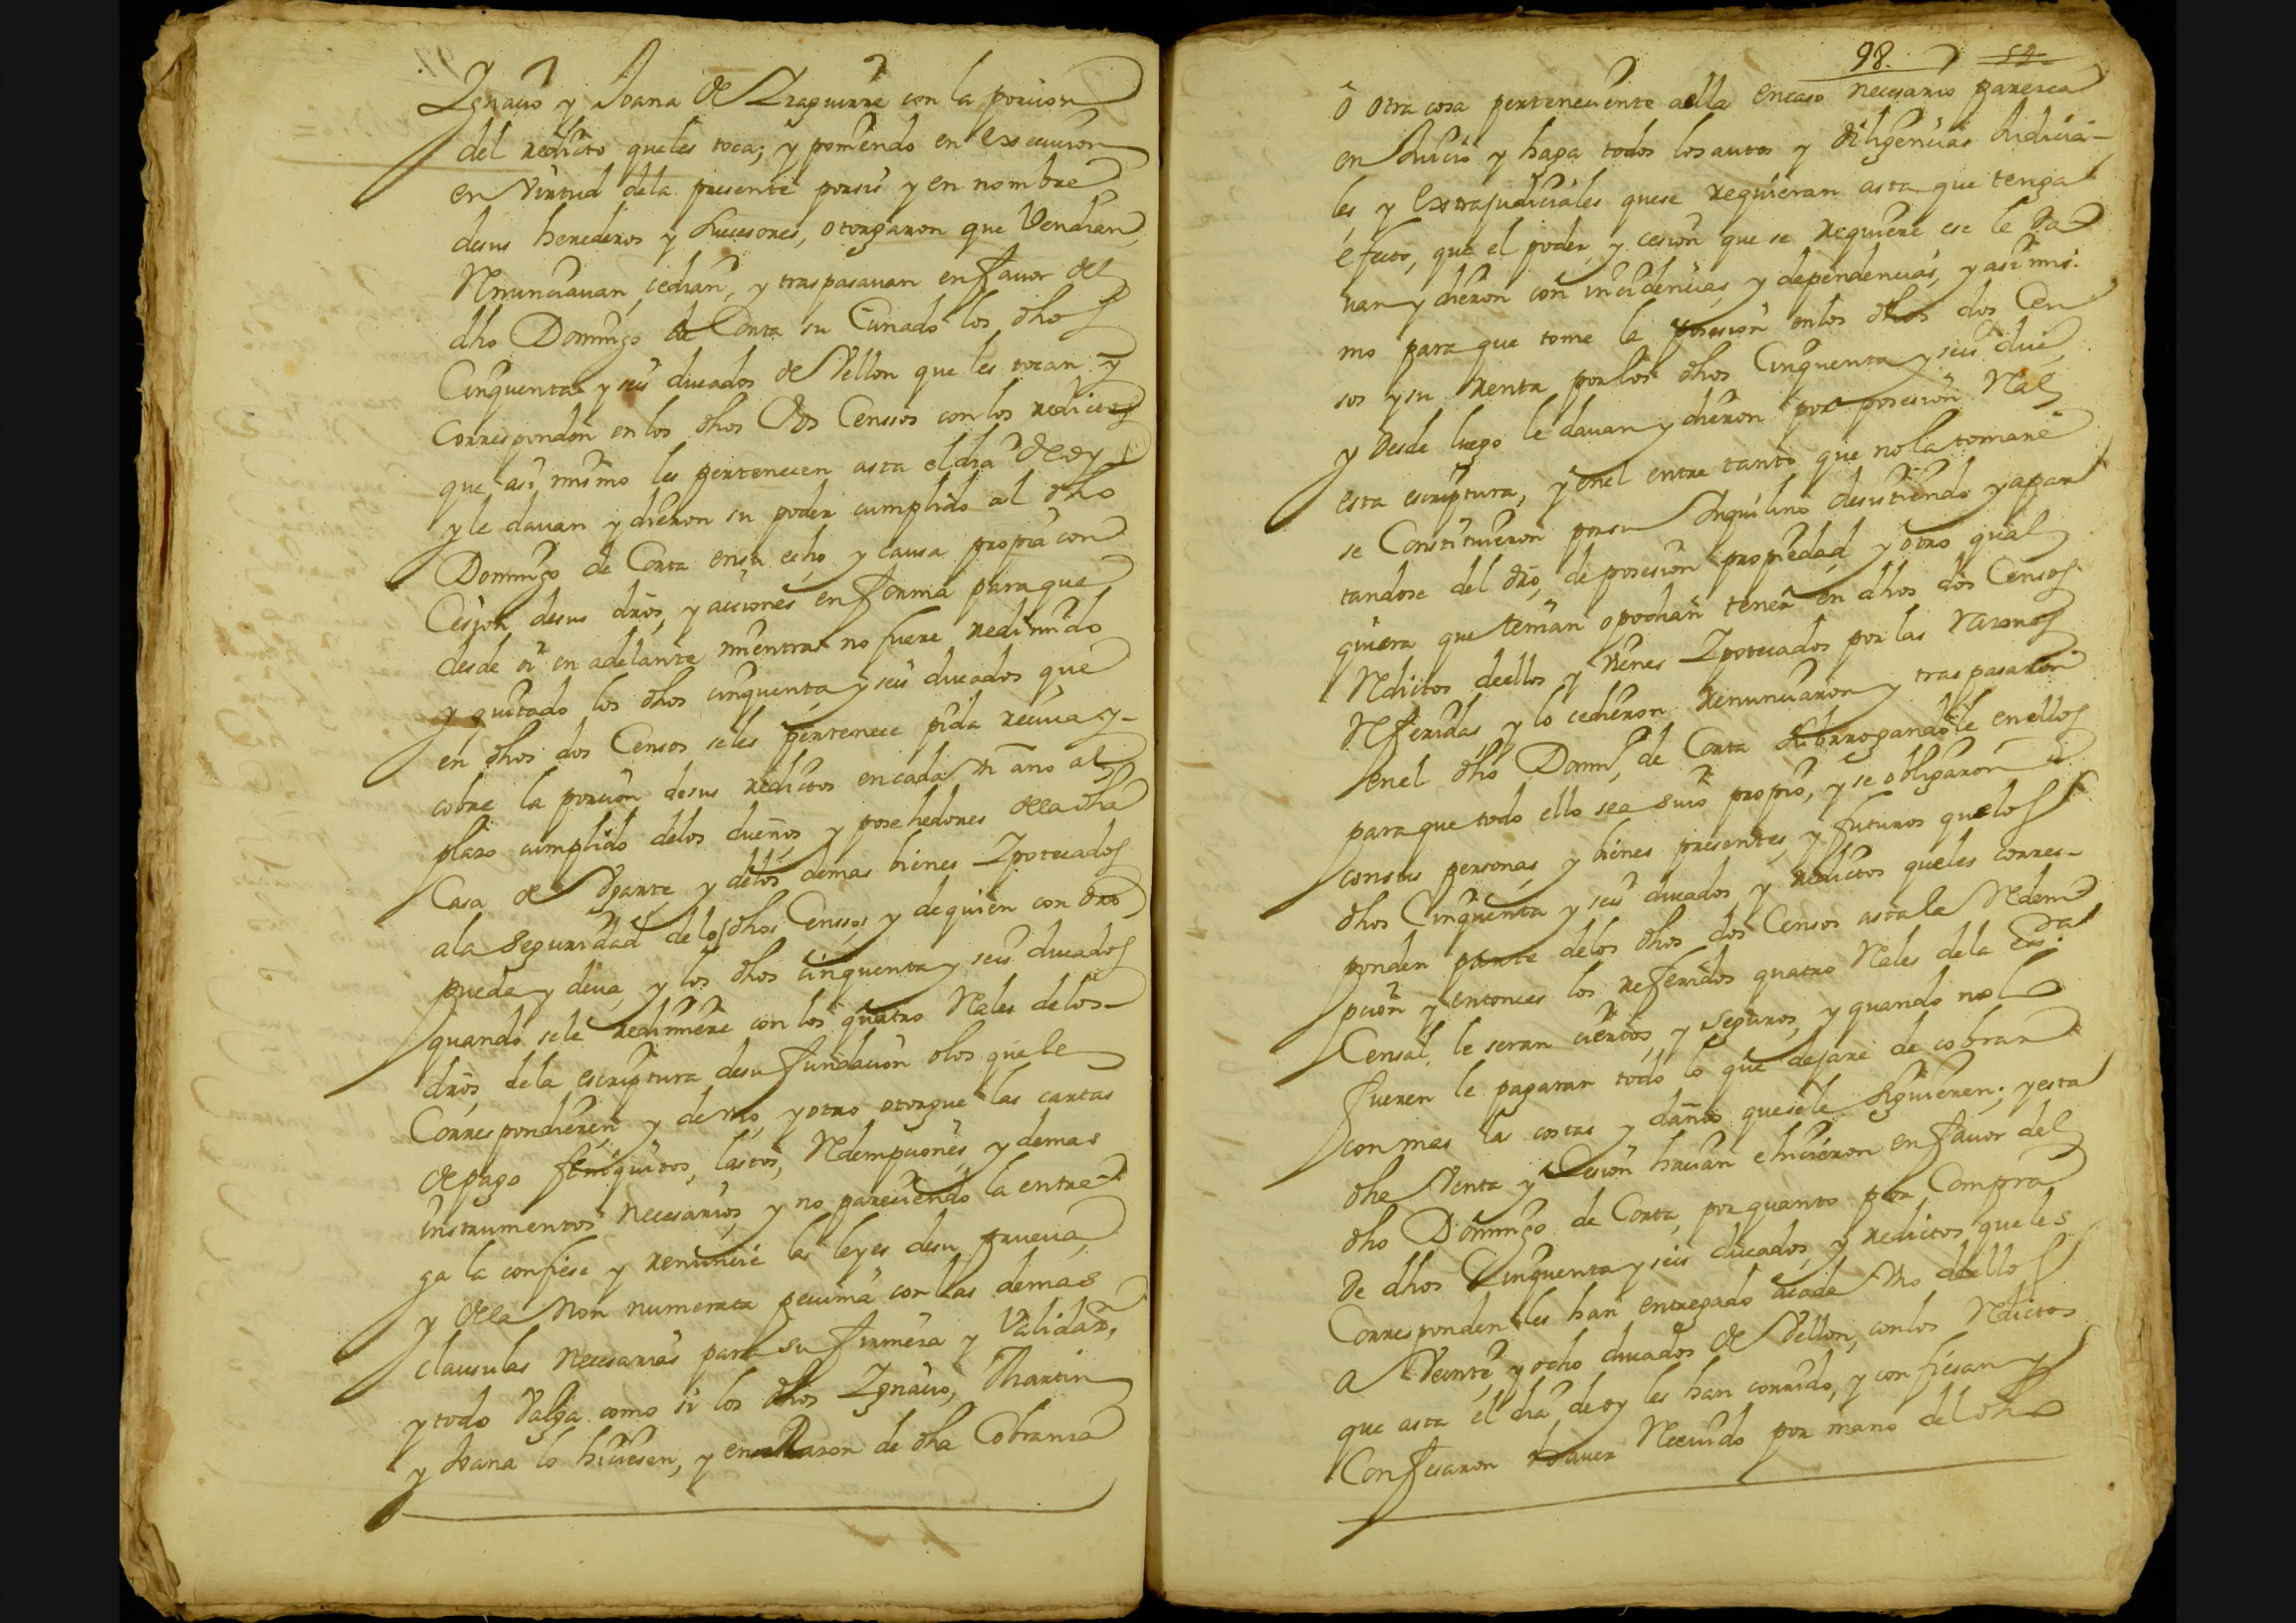 Ygnacio y Joana de Yraguirre con la porcion
del redicto queles toca; y poniendo en execucion
en virtud dela presente porsi y en nombre
desus herederos y subcesores, otorgaron que Vendian,
Renunciavan, cedian, y traspasavan en favor del
dho Domingo de Corta su Cuñado los dhos
Cinquenta y seis ducados de Vellon que les tocan y
Corresponden en los dhos dos Censsos con los redictos
que asi mismo les pertenecen asta el dia de oy
y le davan y dieron su poder cumplido al dho
Domingo de Corta ensu echo y causa propia con
Cesion desus dros, y acciones en forma para que
desde oi en adelante mientras no fuere redimido
y quitado los dhos cinquenta y seis ducados que
en dhos dos Censos seles pertenece pida reciva y
cobre la porcion desus redictos encada Un año al
plazo cumplido delos dueños y posehedores dela dha
Casa de Ugarte y delos demas bienes Ypotecados
ala seguridad delos dhos Censsos y dequien con dro
pueda y deva, y los dhos cinquenta y seis ducados
quando sele redimiere con los quatro Reales delos
dros, dela escriptura desu fundacion olos quele
Correspondieren y de Uno, y otro otorgue las cartas
de pago finiquitos, lastos, Redempciones, y demas
instrumentos necesarios, y no pareciendo la entre-
ga la confiese y renuncie las leyes desu prueva,
y dela Non numerata pecunia con las demas
clausulas necesarias para su firmeza y Validaz.n,
y todo Valga como si los dhos Ygnacio, Martin
y Joana lo hiciesen, y en Razon de dha Cobranza
98.
ô otra cosa perteneciente aella encaso necesario paresca
en Juicio y haga todos los autos y diligencias Judicia-
les y Extrajudiciales quese requieran asta que tenga
efecto, que el poder, y cesion que se requiere ese le da
van y dieron con incidencias, y dependencias, y asi mis-
mo para que tome la posesion enlos dhos dos Cen
sos y su renta por los dhos Cinquenta y seis duc.s
y desde luego le davan y dieron por posesion Real
esta escriptura, y enel entre tanto que no la tomare
se Constituieron porsu Inquilino desistiendo y apar
tandose del dro, de posesion propiedad, y otro qual
quiera que tenian o podian tener en dhos dos Censos
Redictos deellos y Vienes Ypotecados por las razones
Referidas, y lo cedieron renunciaron y traspasaron
enel dho Dom.o de Corta subrrogandole en ellos
para que todo ello sea suio propio, y se obligaron
consus personas, y bienes presentes, y futuros quelos
dhos Cinquenta y seis ducados y redictos queles corres-
ponden parte delos dhos dos Censos asta la Redem
pcion y entonces los referidos quatro Reales dela
Censal, le seran ciertos, y seguros, y quando no lo
fueren le pagaran todo lo que dejare de cobrar
con mas las costas y daños quesele siguieren; y esta
dha Venta y Cesion hacian e hicieron en favor del
dho Domingo de Corta, por quanto por Compra
de dhos Cinquenta y seis ducados, y redictos queles
Corresponden les han entregado acada Uno deellos
a Veinte y ocho ducados de Vellon, conlos Redictos
que asta el dia de oy les han corrido, y confiesan y
Confesaron haver Recivido por mano del dho